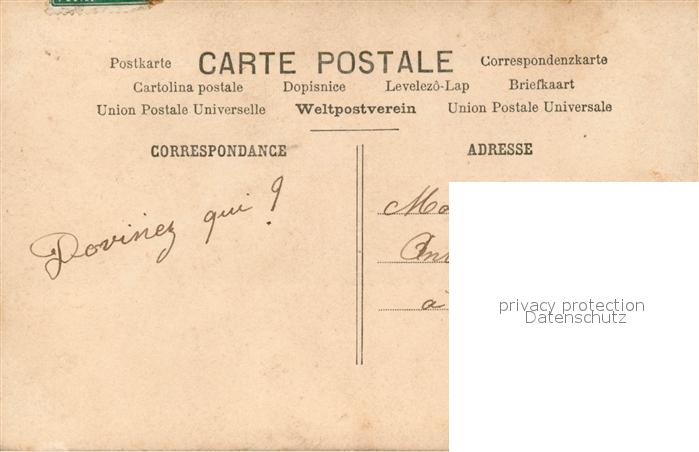 Postkarte CARTE POSTALE Correspondenzkarte
Cartolina postale Dopisnice Levelezô-Lap Briefkaart
Union Postale Universelle Weltpostverein Union Postale Universale
CORRESPONDANCE ADRESSE
Devinez qui ?
à
privacy protection
Datenschutz